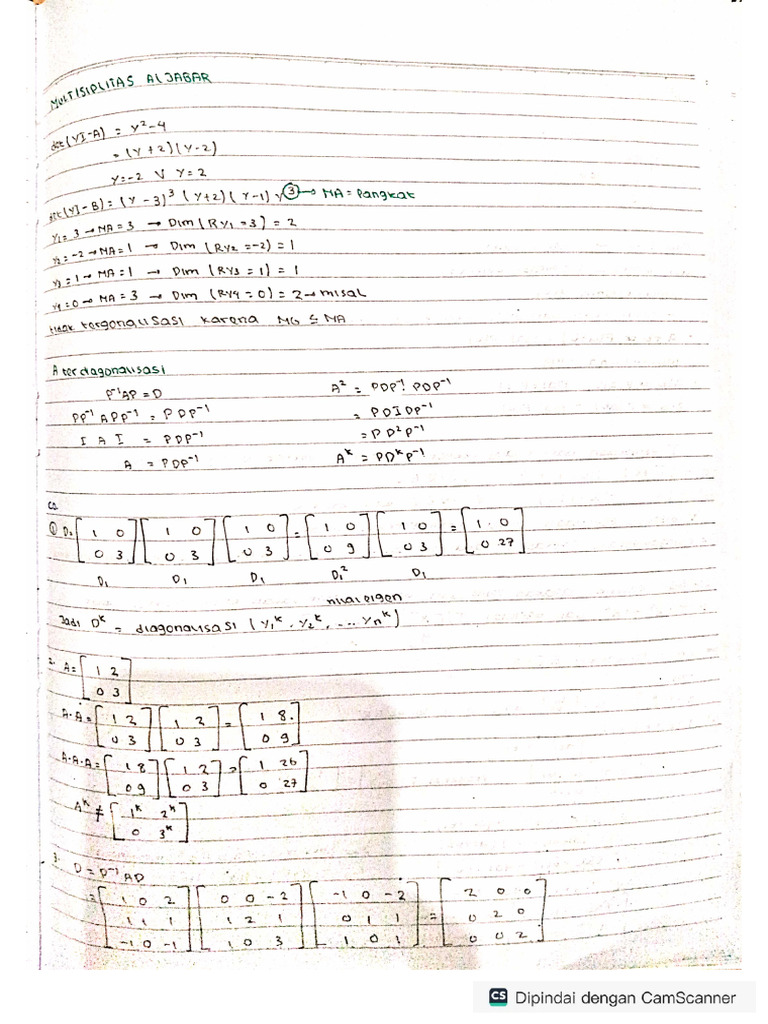 MULTISIPLITAS ALJABAR
det(γI-A) = γ²-4
= (γ+2)(γ-2)
γ=-2 ∨ γ=2
det(γI-B) = (γ-3)³ (γ+2)(γ-1) γ③ → MA = Pangkat
γ₁= 3 → MA = 3 → Dim (Rγ₁ = 3) = 2
γ₂= -2 → MA = 1 → Dim (Rγ₂ = -2) = 1
γ₃= 1 → MA = 1 → Dim (Rγ₃ = 1) = 1
γ₄= 0 → MA = 3 → Dim (Rγ₄ = 0) = 2 → misal
karena MG ⊆ MA
A terdiagonalisasi
P⁻¹AP = D
PP⁻¹ APP⁻¹ = PDP⁻¹
I A I = PDP⁻¹
A = PDP⁻¹
A² = PDP⁻¹. PDP⁻¹
= PDIDP⁻¹
= PD²P⁻¹
Aᵏ = PDᵏP⁻¹
Co.
① D= [1 0; 0 3] [1 0; 0 3] [1 0; 0 3] = [1 0; 0 9] [1 0; 0 3] = [1 0; 0 27]
D₁ D₁ D₁ D₁² D₁
nilai eigen
Jadi Dᵏ = diagonalisasi (γ₁ᵏ, γ₂ᵏ, ... γnᵏ)
2. A= [1 2; 0 3]
A.A = [1 2; 0 3] [1 2; 0 3] = [1 8; 0 9]
A.A.A = [1 8; 0 9] [1 2; 0 3] = [1 26; 0 27]
Aᵏ ≠ [1ᵏ 2ᵏ; 0 3ᵏ]
3. D = P⁻¹ AD
= [1 0 2; 1 1 1; -1 0 -1] [0 0 -2; 1 2 1; 1 0 3] [-1 0 -2; 0 1 1; 1 0 1] = [2 0 0; 0 2 0; 0 0 2]
CS Dipindai dengan CamScanner